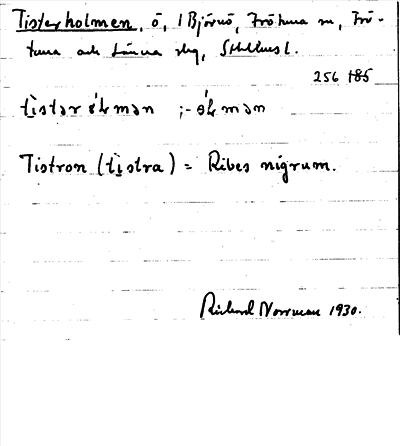 Tisterholmen, ö, i Björnö, Frötuna sn, Frö-
tuna och Länna skg, Sthlms l.
256 185
tìstərɷ́lmən ;-ɷ́lmən
Tistron (tìstra) = Ribes nigrum.
Richard Norrman 1930.